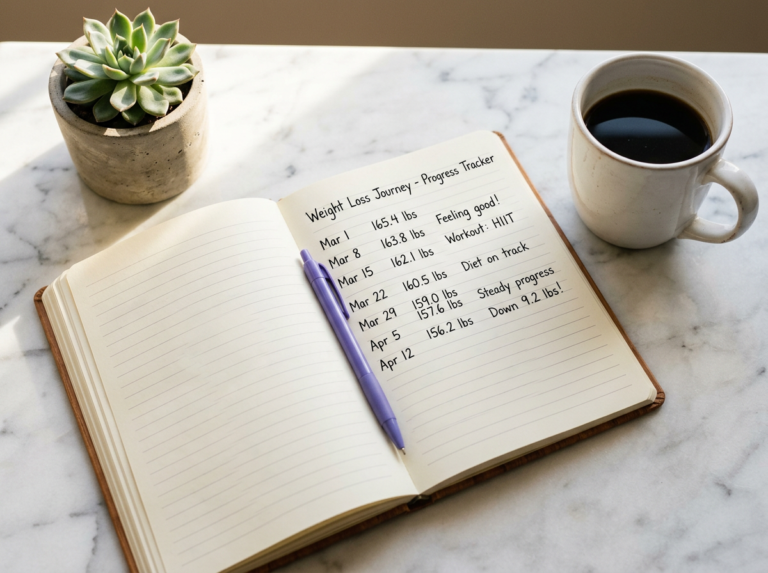 Weight Loss Journey - Progress Tracker
Mar 1 165.4 lbs Feeling good!
Mar 8 163.8 lbs Workout: HIIT
Mar 15 162.1 lbs
Mar 22 160.5 lbs Diet on track
Mar 29 159.0 lbs
Apr 5 157.6 lbs Steady progress
Apr 12 156.2 lbs Down 9.2 lbs!